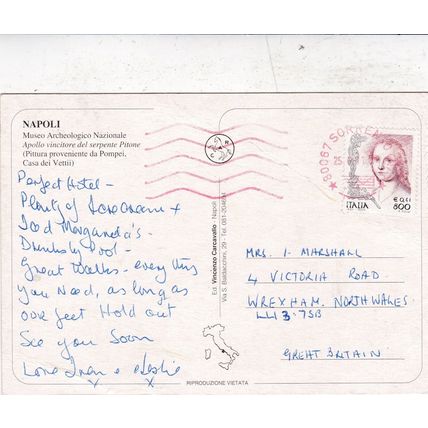 NAPOLI
Museo Archeologico Nazionale
Apollo vincitore del serpente Pitone
(Pittura proveniente da Pompei,
Casa dei Vettii)
Perfect Hotel -
Plenty of Icecream +
Iced Margareta's -
Drinks by Pool -
Great Walks - everything
you Need, as long as
our feet Hold out
See you Soon
Love Ivan & Leslie
x x
Ed. Vincenzo Carcavallo - Napoli
Via S. Baldacchini, 29 - Tel. 081
80067 SORREN
ITALIA
€ 0,41
800
MRS. I. MARSHALL
4 VICTORIA ROAD
WREXHAM. NORTH WALES.
LL13 7SB
GREAT BRITAIN
RIPRODUZIONE VIETATA